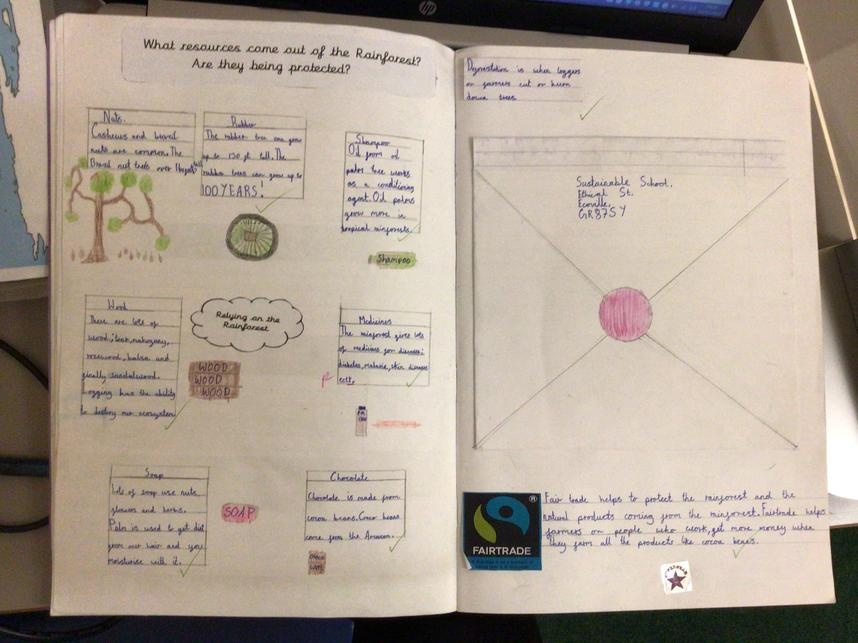 What resources come out of the Rainforest?
Are they being protected?
Nuts.
Cashews and brazil
nuts are common. The
Brazil nut trees over
Rubber
The rubber tree can grow
up to 130 ft tall. The
rubber trees can grow up to
100 YEARS!
Shampoo
Oil from oil
palms tree works
as a conditioning
agent. Oil palms
grow more in
tropical rainforests.
Shampoo
Wood
There are lots of
wood, teak, mahogany,
rosewood, balsa and
finally sandalwood.
Logging has the ability
to destroy our ecosystem
WOOD
WOOD
WOOD
Relying on the
Rainforest
Medicines
The rainforest gives lots
of medicines for diseases:
diabetes, malaria, skin diseases
Soap
Lots of soap use nuts
flowers and herbs.
Palm is used to get dirt
from our hair and you
moisturise with it.
SOAP
Chocolate
Chocolate is made from
cocoa beans. Cocoa beans
come from the Amazon.
Deforestation is when loggers
or farmers cut or burn
down trees
Sustainable School,
Ethical St.
Ecoville,
GR8 7SY
FAIRTRADE
Fair trade helps to protect the rainforest and the
natural products coming from the rainforest. Fairtrade helps
farmers or people who work, get more money when
they farm all the products like cocoa beans.